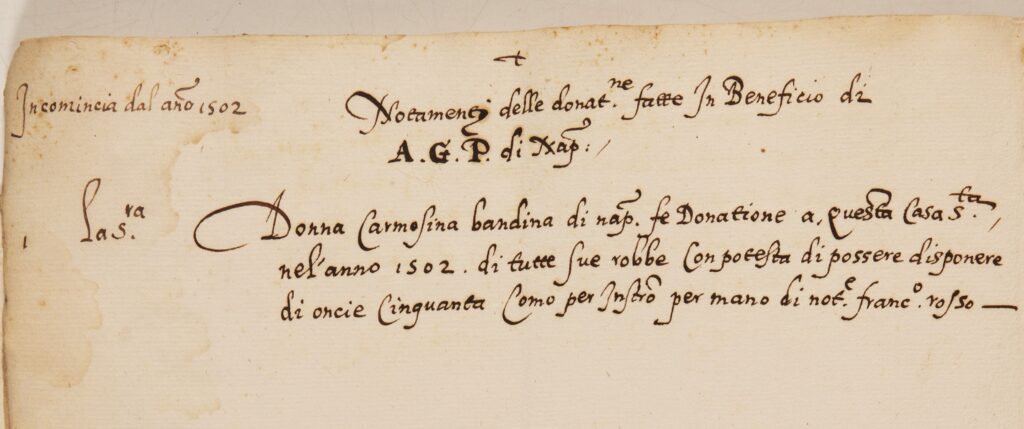 +
Incomincia dal año 1502
Notamenti delle donat.ne fatte In Beneficio di
A. G. P. di Nap:
1 la s.ra Donna Carmosina bandina di nap. fe Donatione a, questa Casa s.ta
nel'anno 1502. di tutte sue robbe Con potesta di possere disponere
di oncie Cinquanta Como per Instro per mano di not.e franc.o rosso —